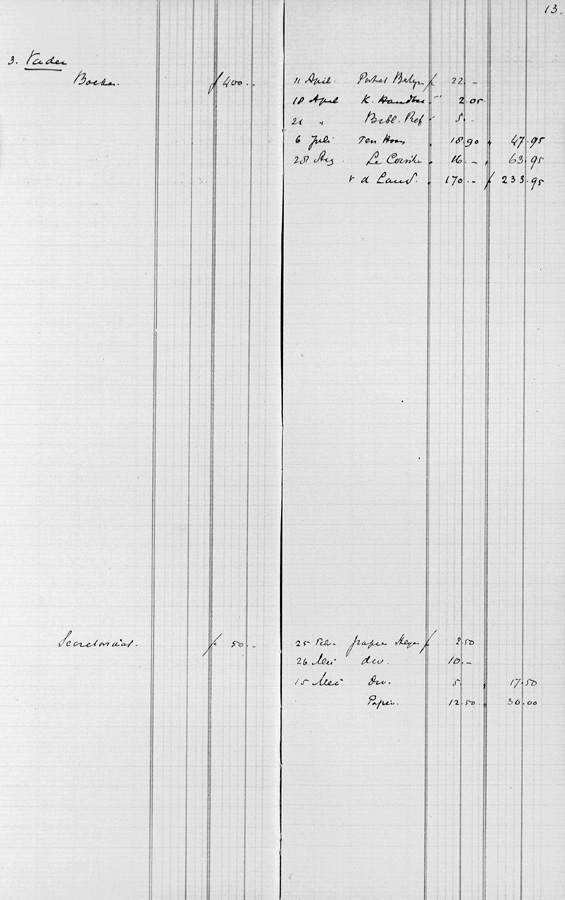 13.
3. Vader
Boeken. f 400.- 11 April. f 22.-
18 April K. 2.05
21 " Bibl. 5.-
6 Juli Ten Hoor " 18.90 " 47.95
28 Aug. Le " 16.- " 63.95
v d Land. " 170.- f 233.95
Secretariaat. f 50.- 25 papier f 2.50
26 Mei div. 10.-
15 Div. 5. " 17.50
Papier. 12.50 " 30.00